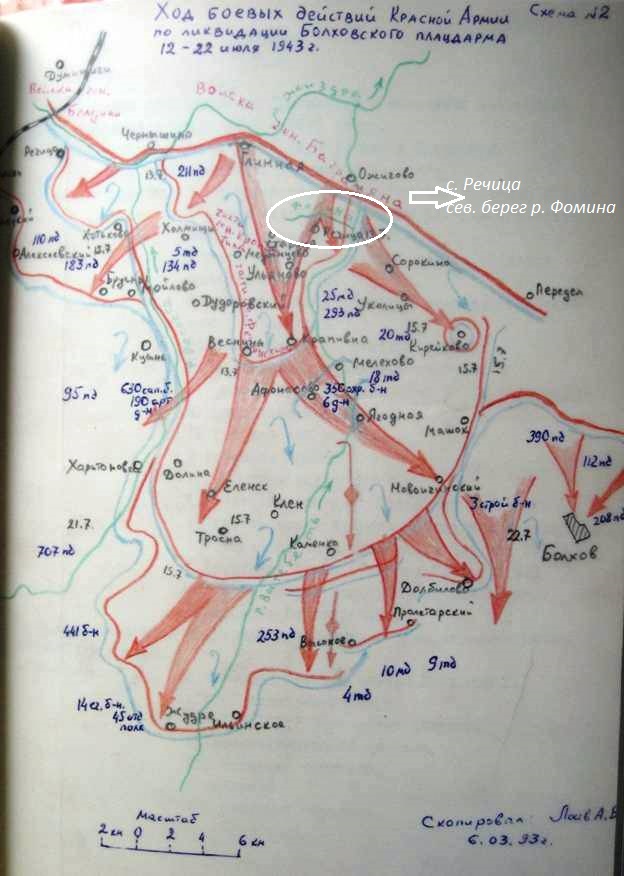 Ход боевых действий Красной Армии
по ликвидации Болховского плацдарма
12-22 июля 1943 г.
Схема №2
Думиничи
Войска
Жиздра
ген. Баграмяна
Чернышино
Речица
13.7
211 пд
Глинная
Ожигово
с. Речица
сев. берег р. Фомина
110 пд
Алексеевский
183 пд
15.7
Хотьково
Холмищи
5 тд
134 пд
Ульяново
Сорокино
Передел
Дудоровский
25 тд
293 пд
Уколицы
20 тд
15.7
Кирейково
15.7
15.7
Веснины
Крапивна
13.7
Мелехово
18 тд
95 пд
630 сап. б.
190 арт
д-н
350 охр. б-н
6 д-н
Ягодная
Машок
390 пд
112 пд
Долина
Еленск
3 строй б-н
208 пд
21.7.
Клен
15.7
Тросна
22.7
Болхов
Каменка
707 пд
15.7
Долбилово
Пролетарский
441 б-н
253 пд
10 тд
9 тд
4 тд
45 отд
полк
Жудре
Ильинское
Масштаб
2 км 0 2 4 6 км
Скопировал:
6.03.93г.